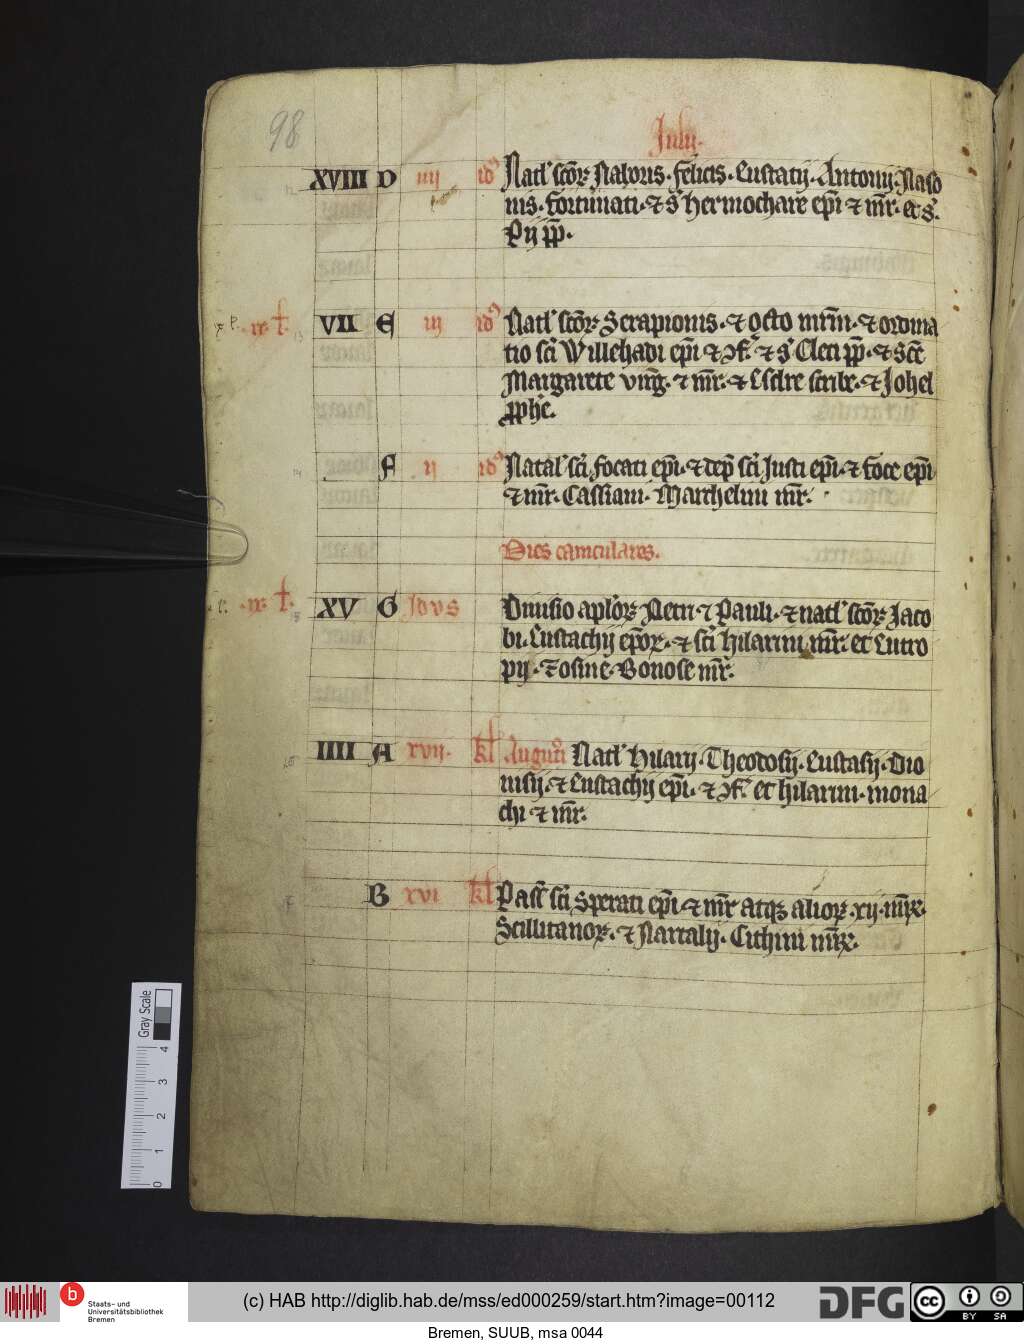 98
July.
XVIII D iiij id9 Natl' sco᷑ꝝ Naboris. felicis. Eustatij. Antonij. Naso
nis. fortunati. ⁊ s' hermochare ep̄i ⁊ mr̄. et s'.
Pij pp̄.
ix. VII E iij id9 Natl' sco᷑ꝝ Serapionis. ⁊ octo mr̄m. ⁊ ordina
tio sc̄i Willehadi ep̄i ⁊ ɔf'. ⁊ s' Cleti pp̄. ⁊ sc̄e
Margarete virḡ. ⁊ mr̄. ⁊ Esdre scribe. ⁊ Johel
pph̄e.
F ij id9 Natal' sc̄i focati ep̄i. ⁊ dep̄ sc̄i Justi ep̄i. ⁊ foce ep̄i
⁊ mr̄. Cassiani. Marchelini mr̄.
Dies caniculares.
ix. XV G Idvs Diuisio apl'oꝝ Petri ⁊ Pauli. ⁊ natl' sco᷑ꝝ Jaco
bi. Eustachij ep̄oꝝ. ⁊ sc̄i hilarini mr̄. et Eutro
pij. Zosime. Bonose mr̄.
IIII A xvij. kl Augusti Natl' Hilarij. Theodosij. Eustasij. Dio
nisij. ⁊ Eustachij ep̄i. ⁊ ɔf'. et hilarini. mona
chi ⁊ mr̄.
B xvi kl Pass' sc̄i Sperati ep̄i ⁊ mr̄ atqꝫ alioꝝ. xij. mr̄ꝝ.
Scillitanoꝝ. ⁊ Nartalij. Cithini mr̄ꝝ.
Gray Scale
4
3
2
1
0
b Staats- und
Universitätsbibliothek
Bremen
(c) HAB http://diglib.hab.de/mss/ed000259/start.htm?image=00112
DFG
cc BY SA
Bremen, SUUB, msa 0044